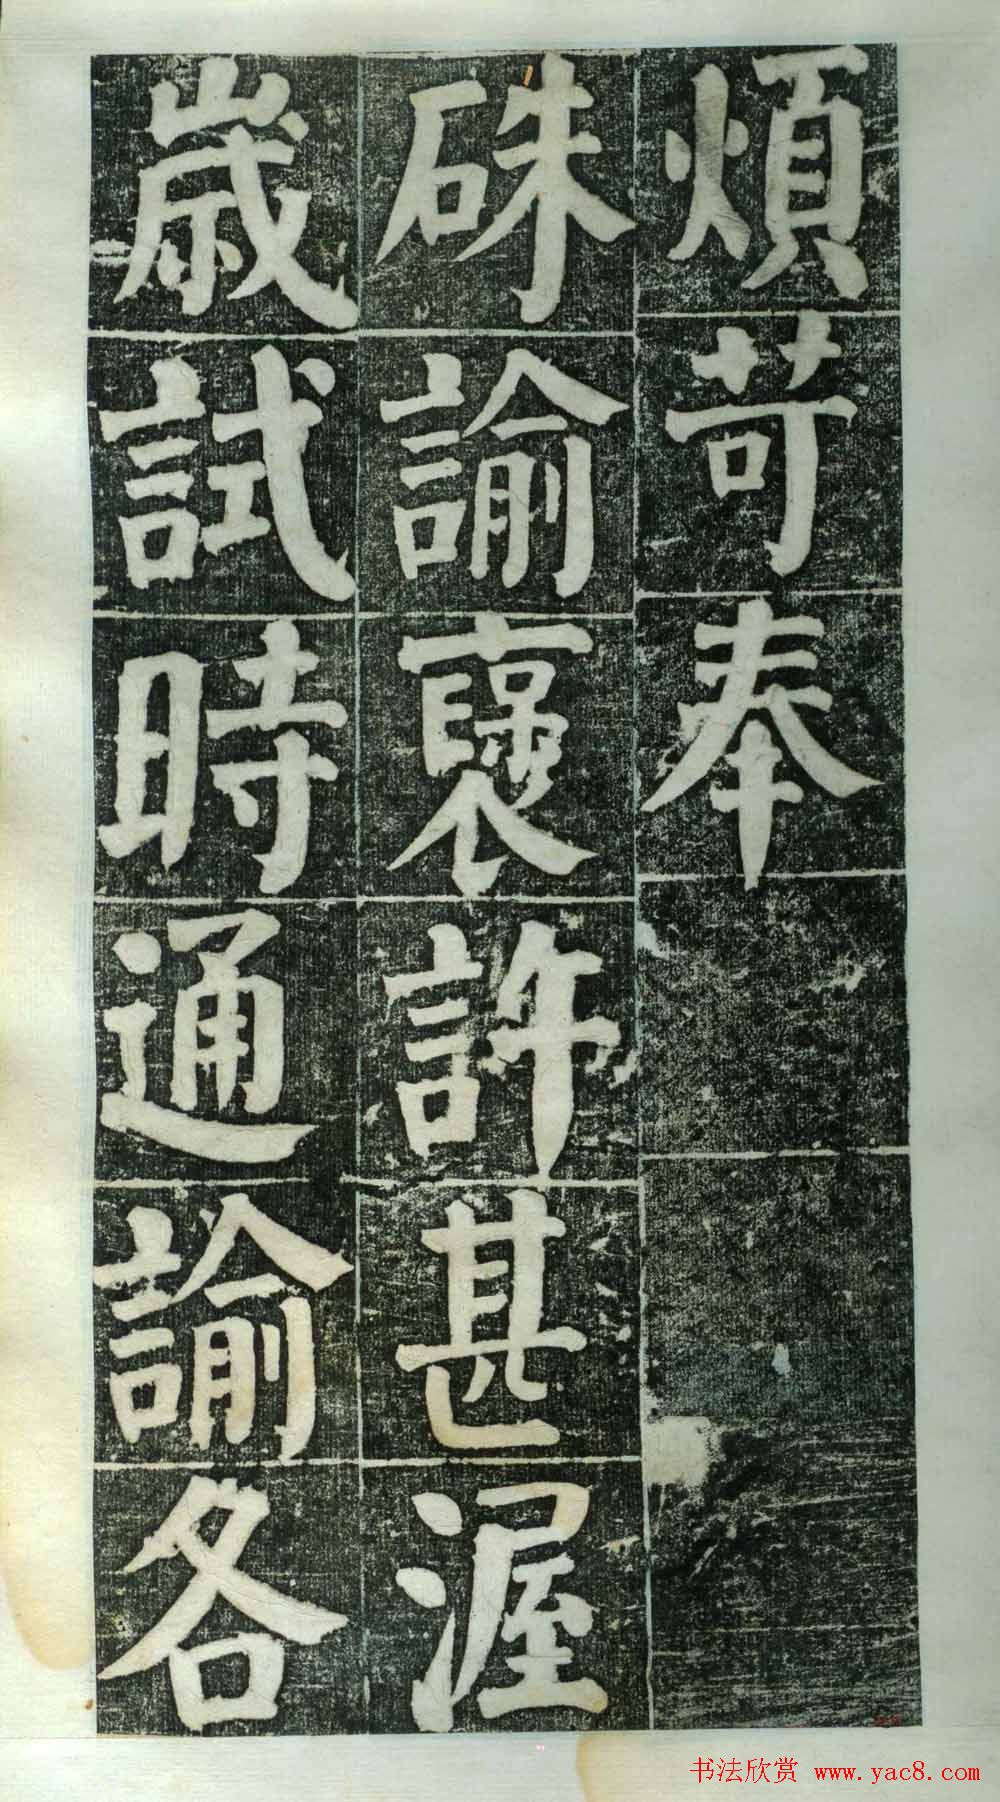 煩苛奉
硃諭襃許甚渥
歲試時通諭各
书法欣赏 www.yac8.com